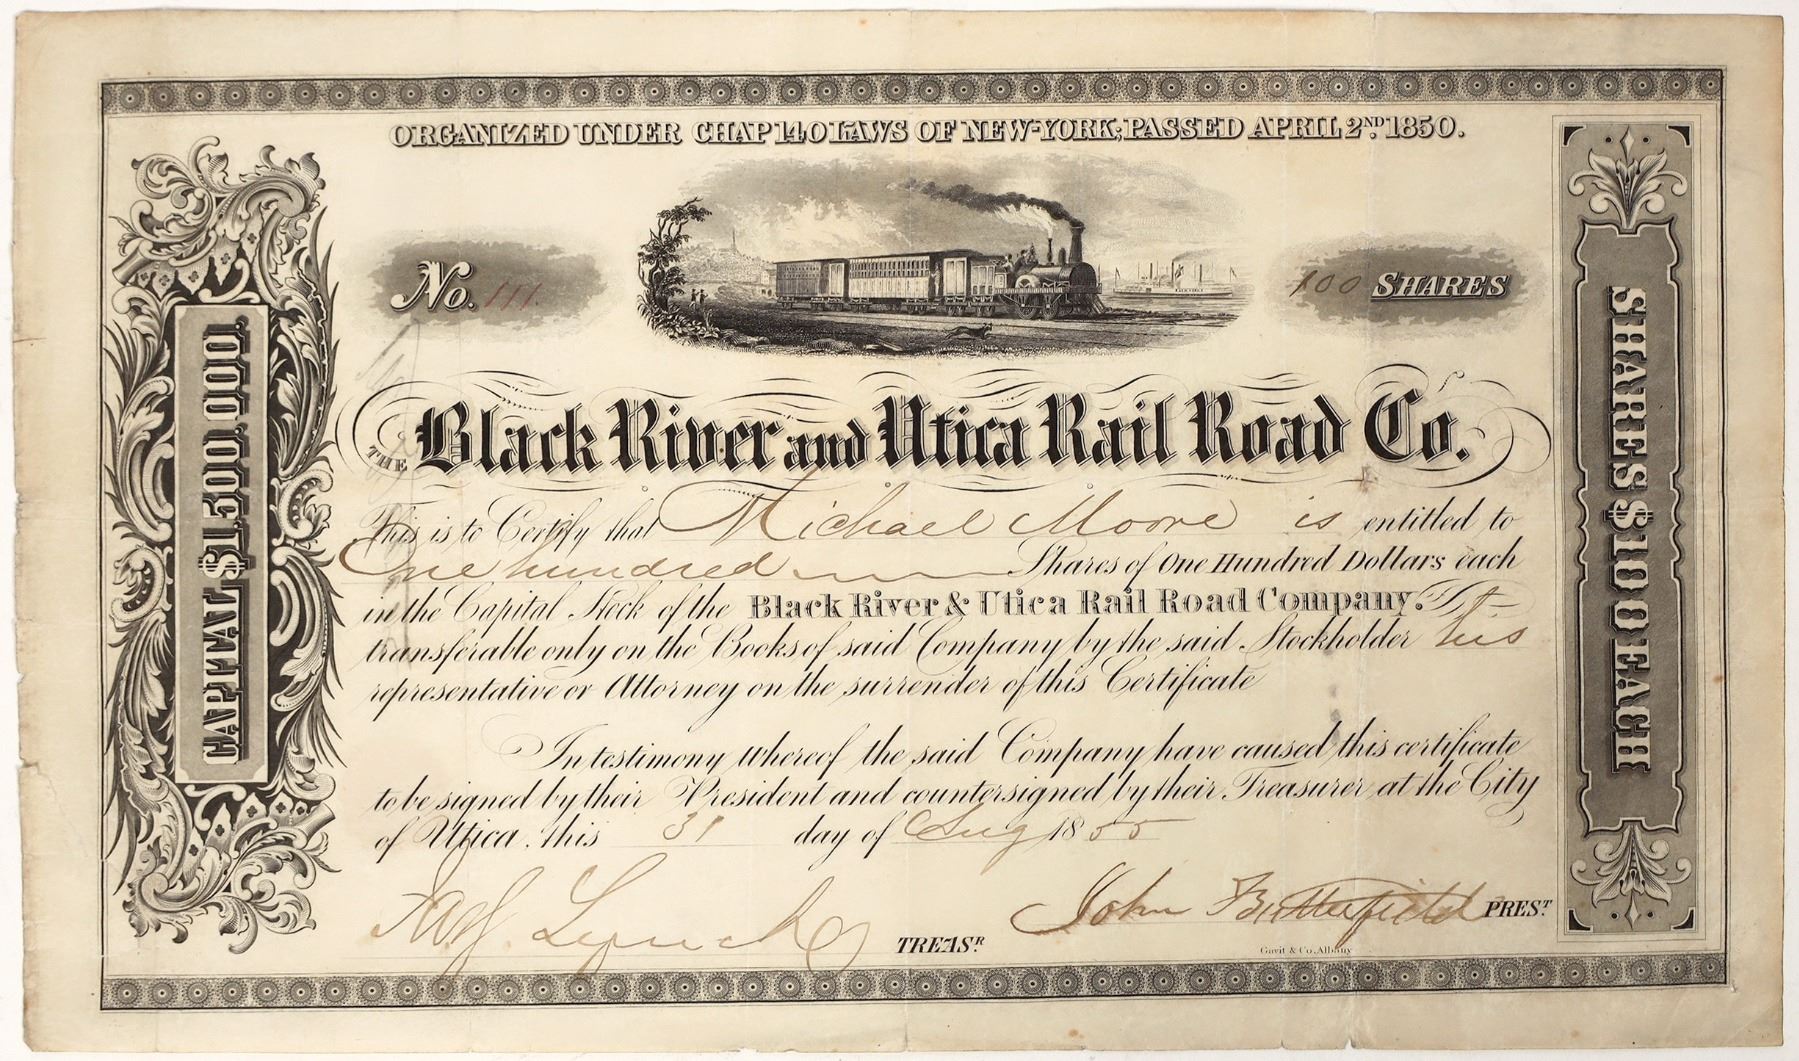 ORGANIZED UNDER CHAP 140 LAWS OF NEW-YORK; PASSED APRIL 2ND. 1850.
No. 111.
100 SHARES
CAPITAL $1,500,000.
SHARES $100 EACH
THE Black River and Utica Rail Road Co.
This is to Certify that Michael Moore is entitled to
One hundred Shares of One Hundred Dollars each
in the Capital Stock of the Black River & Utica Rail Road Company.
transferable only on the Books of said Company by the said Stockholder his
representative or Attorney on the surrender of this Certificate
In testimony whereof the said Company have caused this certificate
to be signed by their President and countersigned by their Treasurer at the City
of Utica, this 31 day of Aug 1855
Lynch TREASR.
John Butterfield PREST.
Gavit & Co. Albany